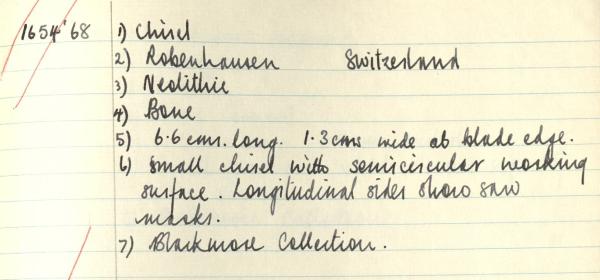 1654'68 1) Chisel
2) Robenhausen Switzerland
3) Neolithic
4) Bone
5) 6.6 cms. long. 1.3 cms wide at blade edge.
6) Small chisel with semicircular working
surface. Longitudinal sides show saw
marks.
7) Blackmore Collection.